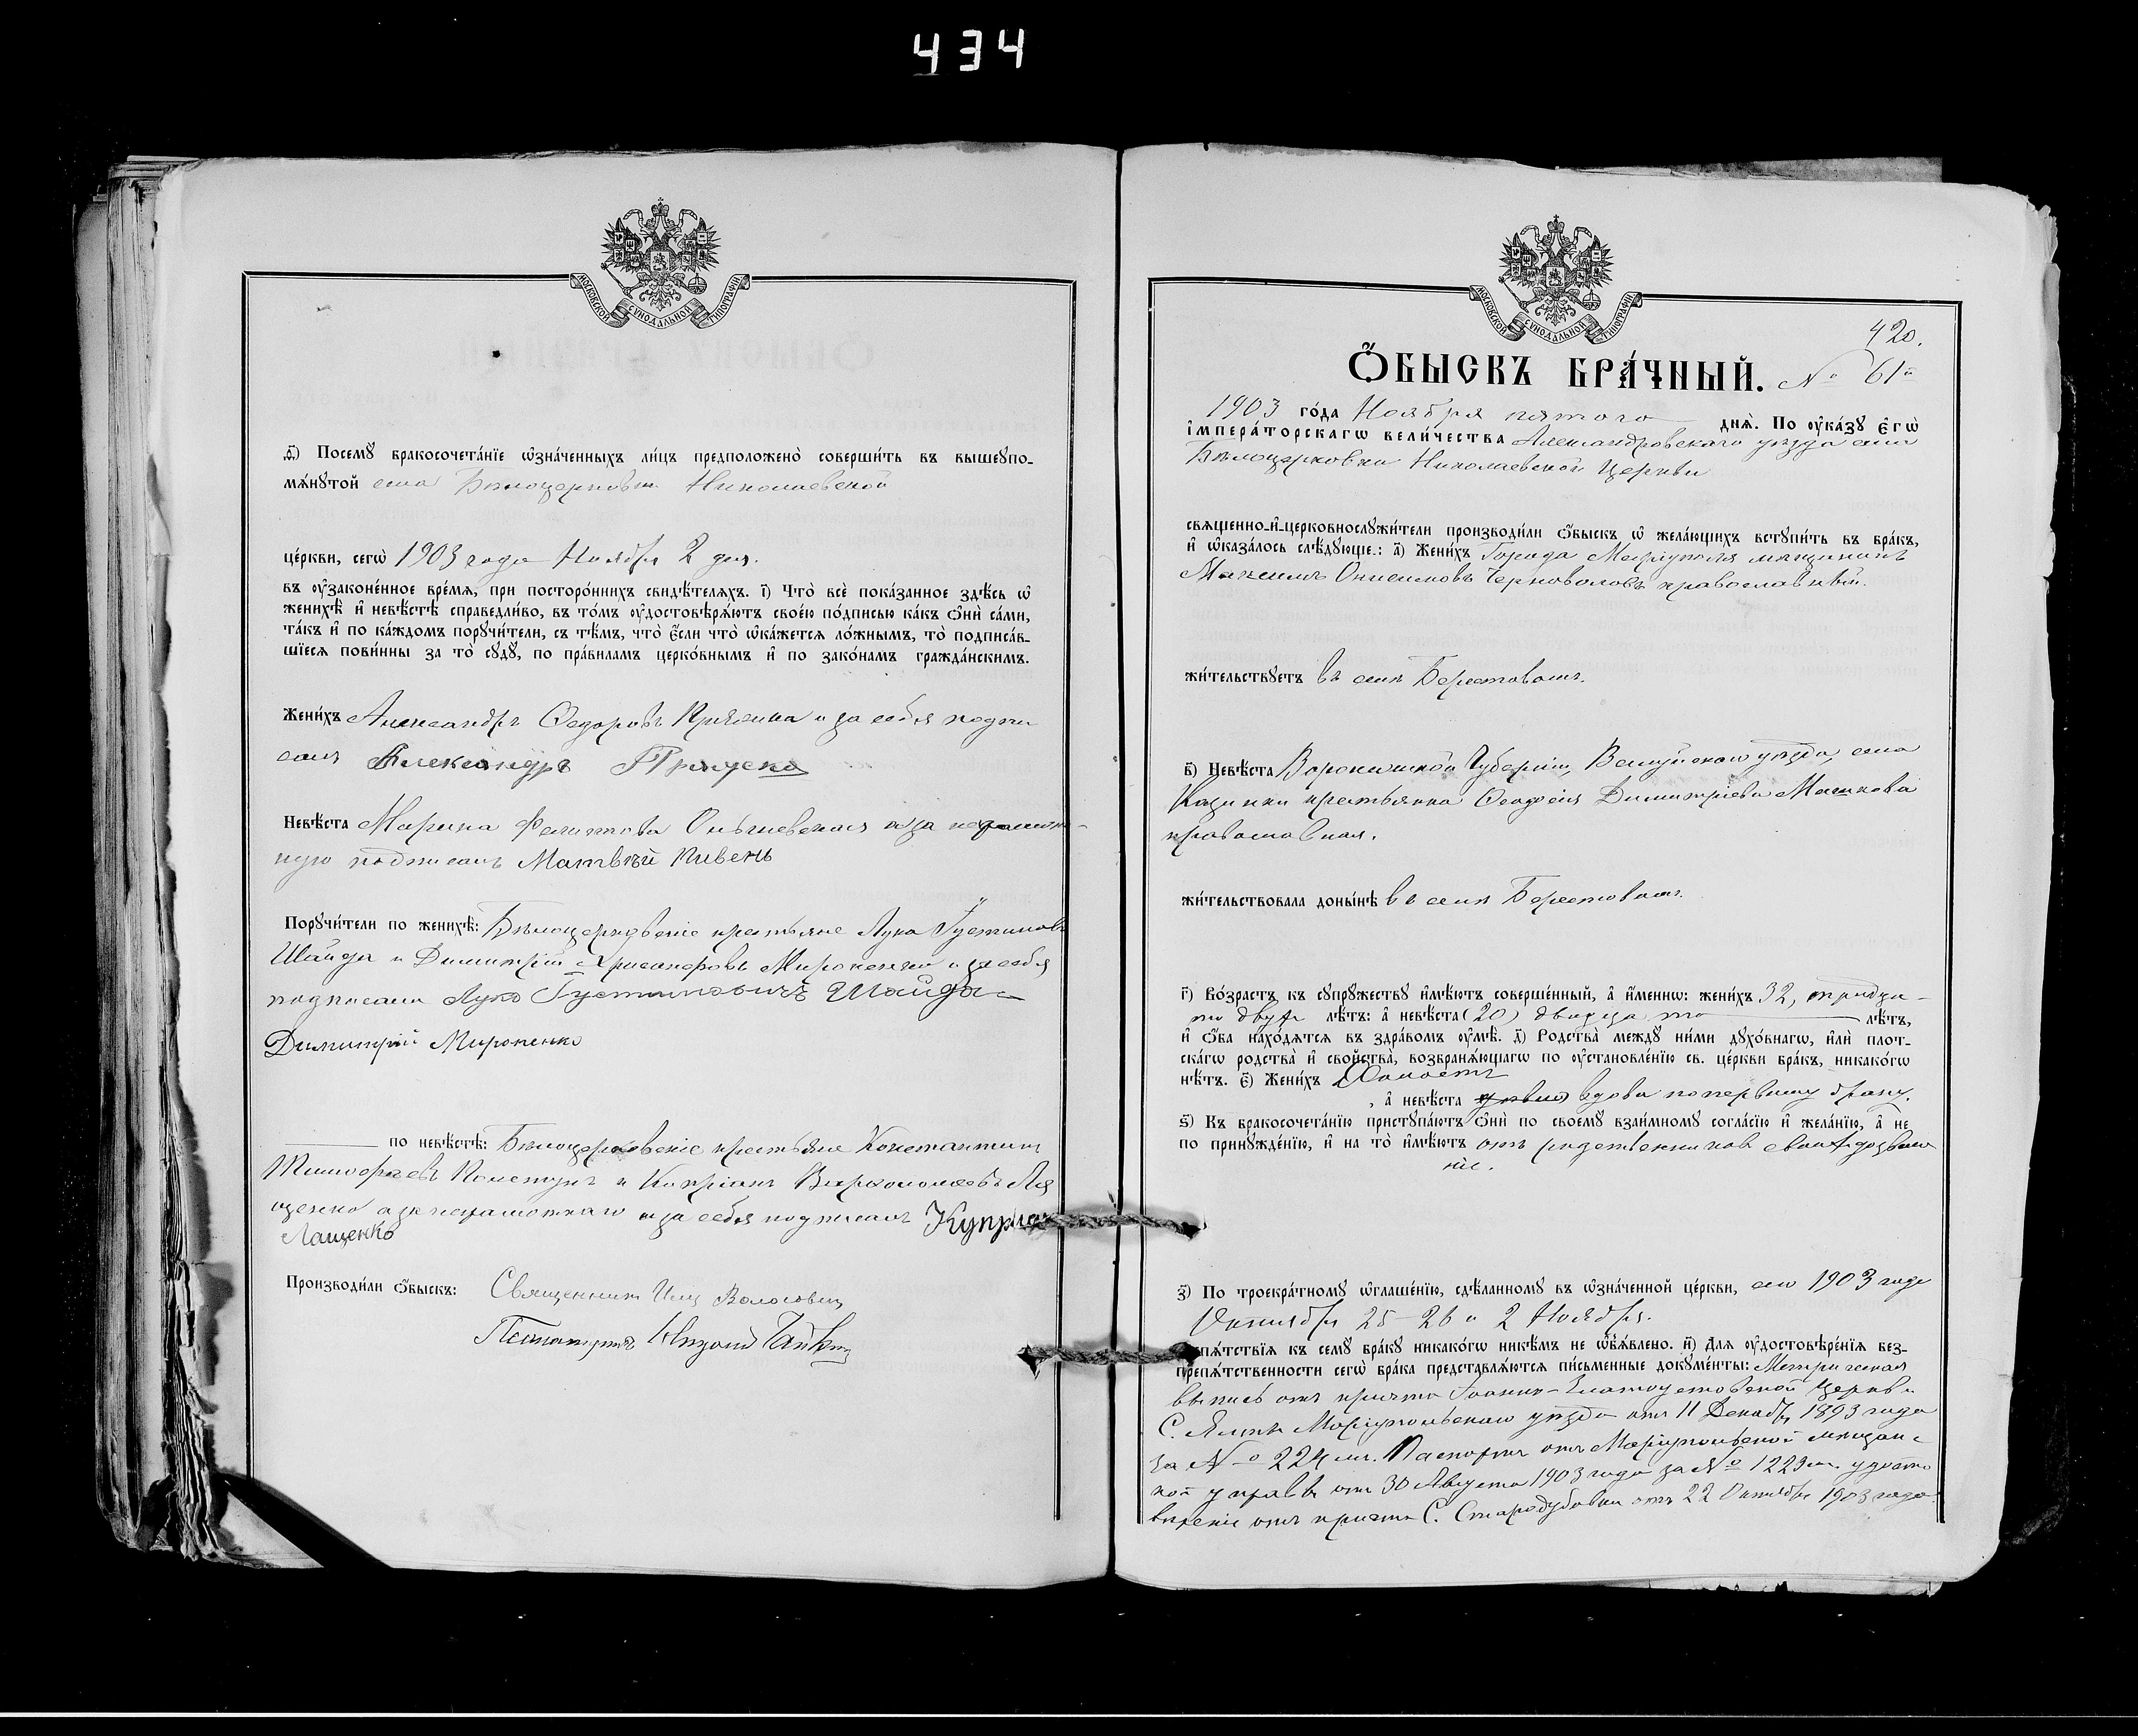 434
МОСКОВСКОЙ СѴНОДАЛЬНОЙ ТИПОГРАФІИ
ѳ҃) Посемꙋ бракосочета́нїе ѡ҆зна́ченныхъ ли́цъ предположено̀ соверши́ть въ вышеупо-
мѧ́нꙋтой села Бѣлоцерковки Николаевской
це́ркви, сегѡ̀ 1903 года Ноября 2 дня.
въ ᲂу҆зако́ненное вре́мѧ, при посторо́ннихъ свидѣ́телѧхъ. і҃) Что̀ всѐ пока́занное здѣ́сь ѡ҆
женихѣ̀ и҆ невѣ́стѣ справедли́во, въ то́мъ ᲂу҆достовѣрѧ́ютъ свое́ю по́дписью ка́къ ѻ҆нѝ са́ми,
та́къ и҆ по ка́ждомъ порꙋчи́тели, съ тѣ́мъ, что̀ є҆́сли что̀ ѡ҆ка́жетсѧ ло́жнымъ, то̀ подписа́в-
шїесѧ пови́нны за то̀ сꙋдꙋ̀, по пра́виламъ церко́внымъ и҆ по зако́намъ гражда́нскимъ.
Жени́хъ Александръ Ѳедоровъ и за себя подпи
салъ Александръ
Невѣ́ста Марина Филиппова а за неграмот-
ную подписалъ Матвѣй Кивень
Порꙋчи́тели по женихѣ̀: Бѣлоцерковскіе крестьяне Лука Густиновъ
Шайда и Димитрій Хрисанфовъ Мироненко и за себя
подписали Лука Густиновичъ Шайда
Димитрій Мироненко
по невѣ́стѣ: Бѣлоцерковскіе крестьяне Константинъ
Тимофѣевъ и Кипріанъ Варфоломѣевъ Ла
щенко а за неграмотнаго и за себя подписалъ Куприян
Лащенко
Производи́ли ѻ҆́быскъ: Священникъ
Псаломщикъ
МОСКОВСКОЙ СѴНОДАЛЬНОЙ ТИПОГРАФІИ
420.
Ѻ҆́БЫСКЪ БРА́ЧНЫЙ. № 61й
1903 го́да Ноября пятого днѧ̀. По ᲂу҆ка́зꙋ є҆гѡ̀
і҆мпера́торскагѡ вели́чества Александровскаго уѣзда села
Бѣлоцерковки Николаевской Церкви
свѧщенно-и҆-церковнослꙋжи́тели производи́ли ѻ҆́быскъ ѡ҆ жела́ющихъ встꙋпи́ть въ бра́къ,
и҆ ѡ҆каза́лось слѣ́дꙋющее: а҃) Жени́хъ Города Маріуполя мѣщанинъ
Максимъ Онисимовъ Черноволовъ православный.
жи́тельствꙋетъ въ селѣ Берестовомъ.
в҃) Невѣ́ста Воронежской Губерніи, Валуйскаго уѣзда, села
Казинки крестьянка Ѳеодосія Димитріева Машкова
православная.
жи́тельствовала доны́нѣ въ селѣ Берестовомъ.
г҃) Во́зрастъ къ сꙋпрꙋ́жествꙋ и҆мѣ́ютъ соверше́нный, а҆ и҆́менно: жени́хъ 32, тридца-
ти двухъ лѣ́тъ: а҆ невѣ́ста (20) двадцати лѣ́тъ,
и҆ ѻ҆́ба нахо́дѧтсѧ въ здра́вомъ ᲂу҆мѣ̀. д҃) Родства̀ междꙋ̀ ни́ми дꙋхо́внагѡ, и҆лѝ плот-
ска́гѡ родства̀ и҆ сво́йства, возбранѧ́ющагѡ по ᲂу҆становле́нїю св. це́ркви бра́къ, никако́гѡ
нѣ́тъ. є҃) Жени́хъ Холостъ
, а҆ невѣ́ста вдова по первому браку.
ѕ҃) Къ бракосочета́нїю пристꙋпа́ютъ ѻ҆нѝ по своемꙋ̀ взаи́мномꙋ согла́сїю и҆ жела́нїю, а҆ не
по принꙋжде́нїю, и҆ на то̀ и҆мѣ́ютъ отъ родственниковъ своихъ дозволе
ніе.
з҃) По троекра́тномꙋ ѡ҆глаше́нїю, сдѣ́ланномꙋ въ ѡ҆зна́ченной це́ркви, сего 1903 года
Октября 25 26 и 2 Ноября.
препѧ́тствїѧ къ семꙋ̀ бра́кꙋ никако́гѡ никѣ́мъ не ѡ҆б̾ѧ́влено. и҃) Длѧ ᲂу҆достовѣре́нїѧ без-
препѧ́тственности сегѡ̀ бра́ка представлѧ́ютсѧ пи́сьменные докꙋме́нты: Метрическая
выпись отъ причта Іоанно-Златоустовской Церкви
С. Ялты Маріупольскаго уѣзда отъ 11 Декабря 1893 года
за № 224мъ. Паспортъ отъ Маріупольской мѣщанс
кой управы отъ 30 Августа 1903 года за № 1223мъ. удосто
вѣреніе отъ причта С. Стародубовки отъ 22 Октября 1903 года